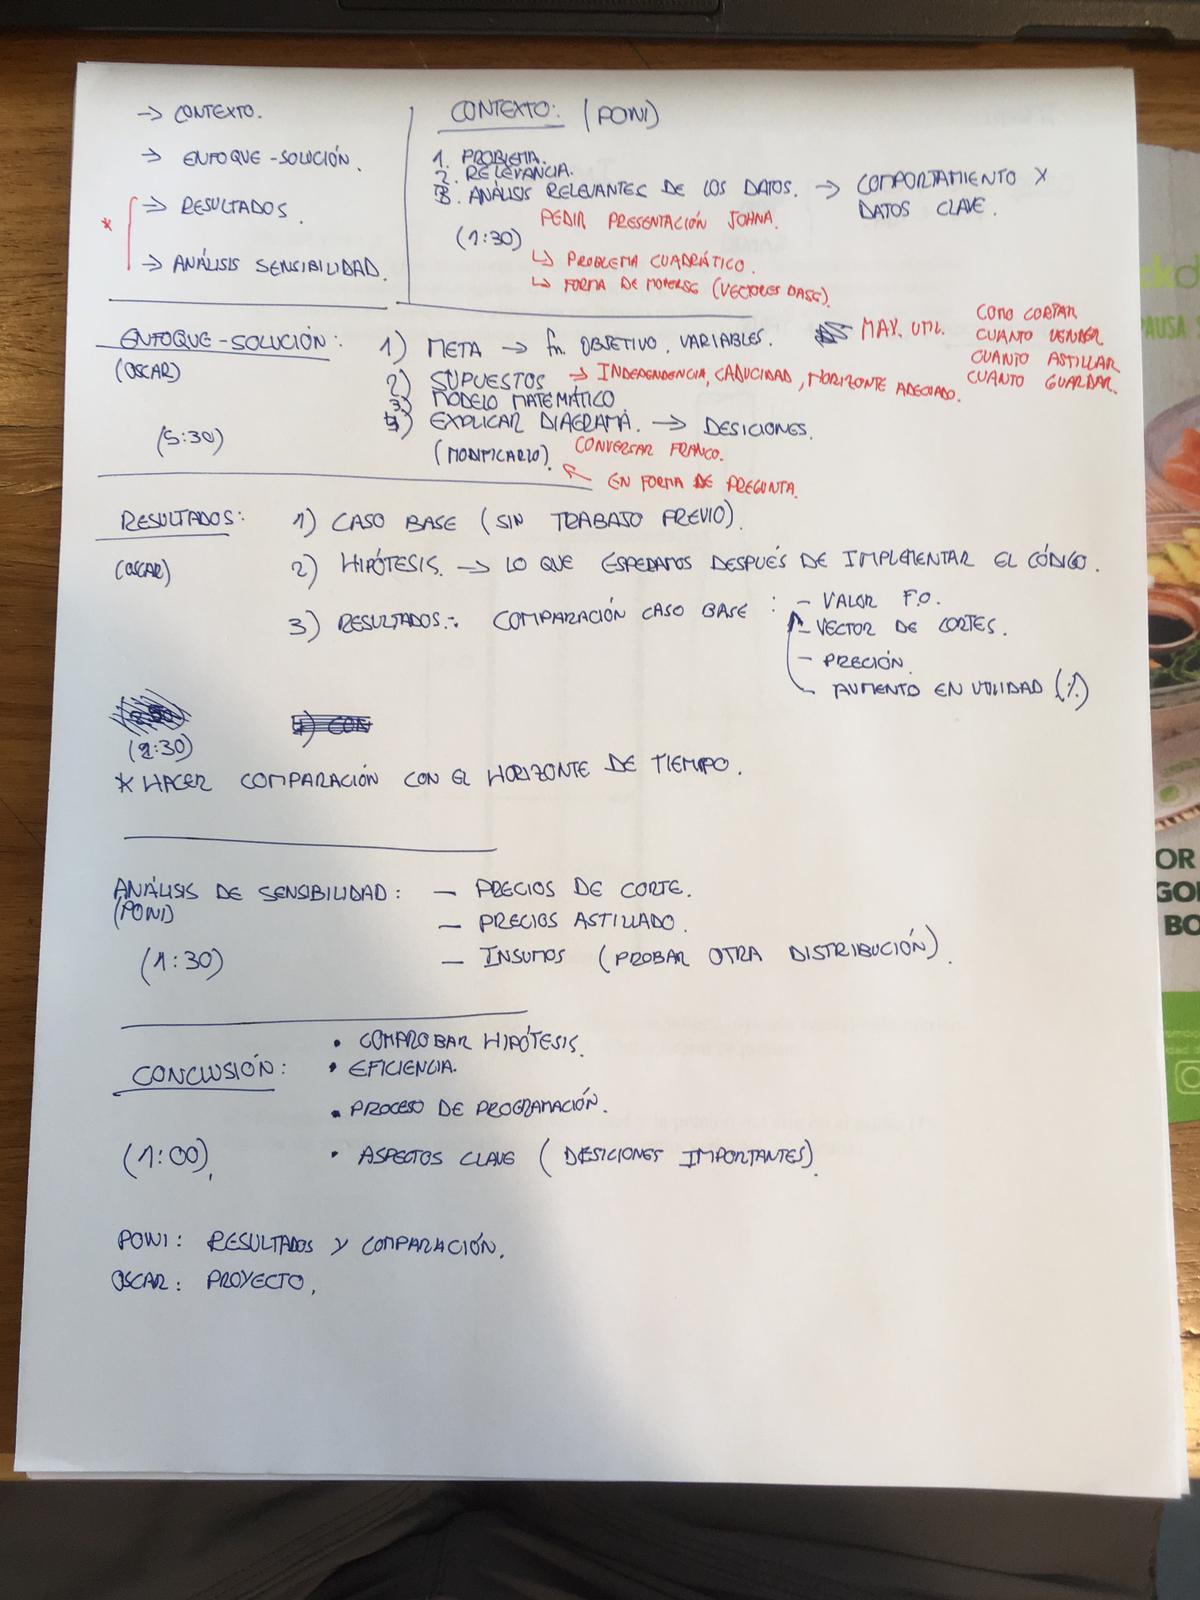 → CONTEXTO.
→ ENFOQUE-SOLUCIÓN.
* → RESULTADOS.
→ ANÁLISIS SENSIBILIDAD.
CONTEXTO: (PONI)
1. PROBLEMA.
2. RELEVANCIA.
3. ANÁLISIS RELEVANTES DE LOS DATOS. → COMPORTAMIENTO X
DATOS CLAVE.
PEDIR PRESENTACIÓN JOHNA.
(1:30)
↳ PROBLEMA CUADRÁTICO.
↳ FORMA DE MOVERSE (VECTORES BASE).
ENFOQUE-SOLUCIÓN:
(OSCAR)
(5:30)
1) META → fn. OBJETIVO, VARIABLES. MAX. UTIL.
COMO CORTAR
CUANTO VENDER
CUANTO ASTILLAR
CUANTO GUARDAR.
2) SUPUESTOS → INDEPENDENCIA, CADUCIDAD, HORIZONTE ADECUADO.
3) MODELO MATEMÁTICO
4) EXPLICAR DIAGRAMA. → DESICIONES.
(MODIFICARLO). CONVERSAR FRANCO.
EN FORMA DE PREGUNTA.
RESULTADOS: 1) CASO BASE (SIN TRABAJO PREVIO).
(OSCAR) 2) HIPÓTESIS. → LO QUE ESPERAMOS DESPUÉS DE IMPLEMENTAR EL CÓDIGO.
3) RESULTADOS: COMPARACIÓN CASO BASE : - VALOR F.O.
- VECTOR DE CORTES.
- PRECIÓN.
AUMENTO EN UTILIDAD (%)
4) CON
(2:30)
* HACER COMPARACIÓN CON EL HORIZONTE DE TIEMPO.
ANÁLISIS DE SENSIBILIDAD: - PRECIOS DE CORTE.
(PONI) - PRECIOS ASTILLADO.
(1:30) - INSUMOS (PROBAR OTRA DISTRIBUCIÓN).
CONCLUSIÓN:
• COMPROBAR HIPÓTESIS.
• EFICIENCIA.
• PROCESO DE PROGRAMACIÓN.
(1:00). • ASPECTOS CLAVE (DESICIONES IMPORTANTES).
PONI: RESULTADOS Y COMPARACIÓN.
OSCAR: PROYECTO.
AUSA
OR
GO
BO